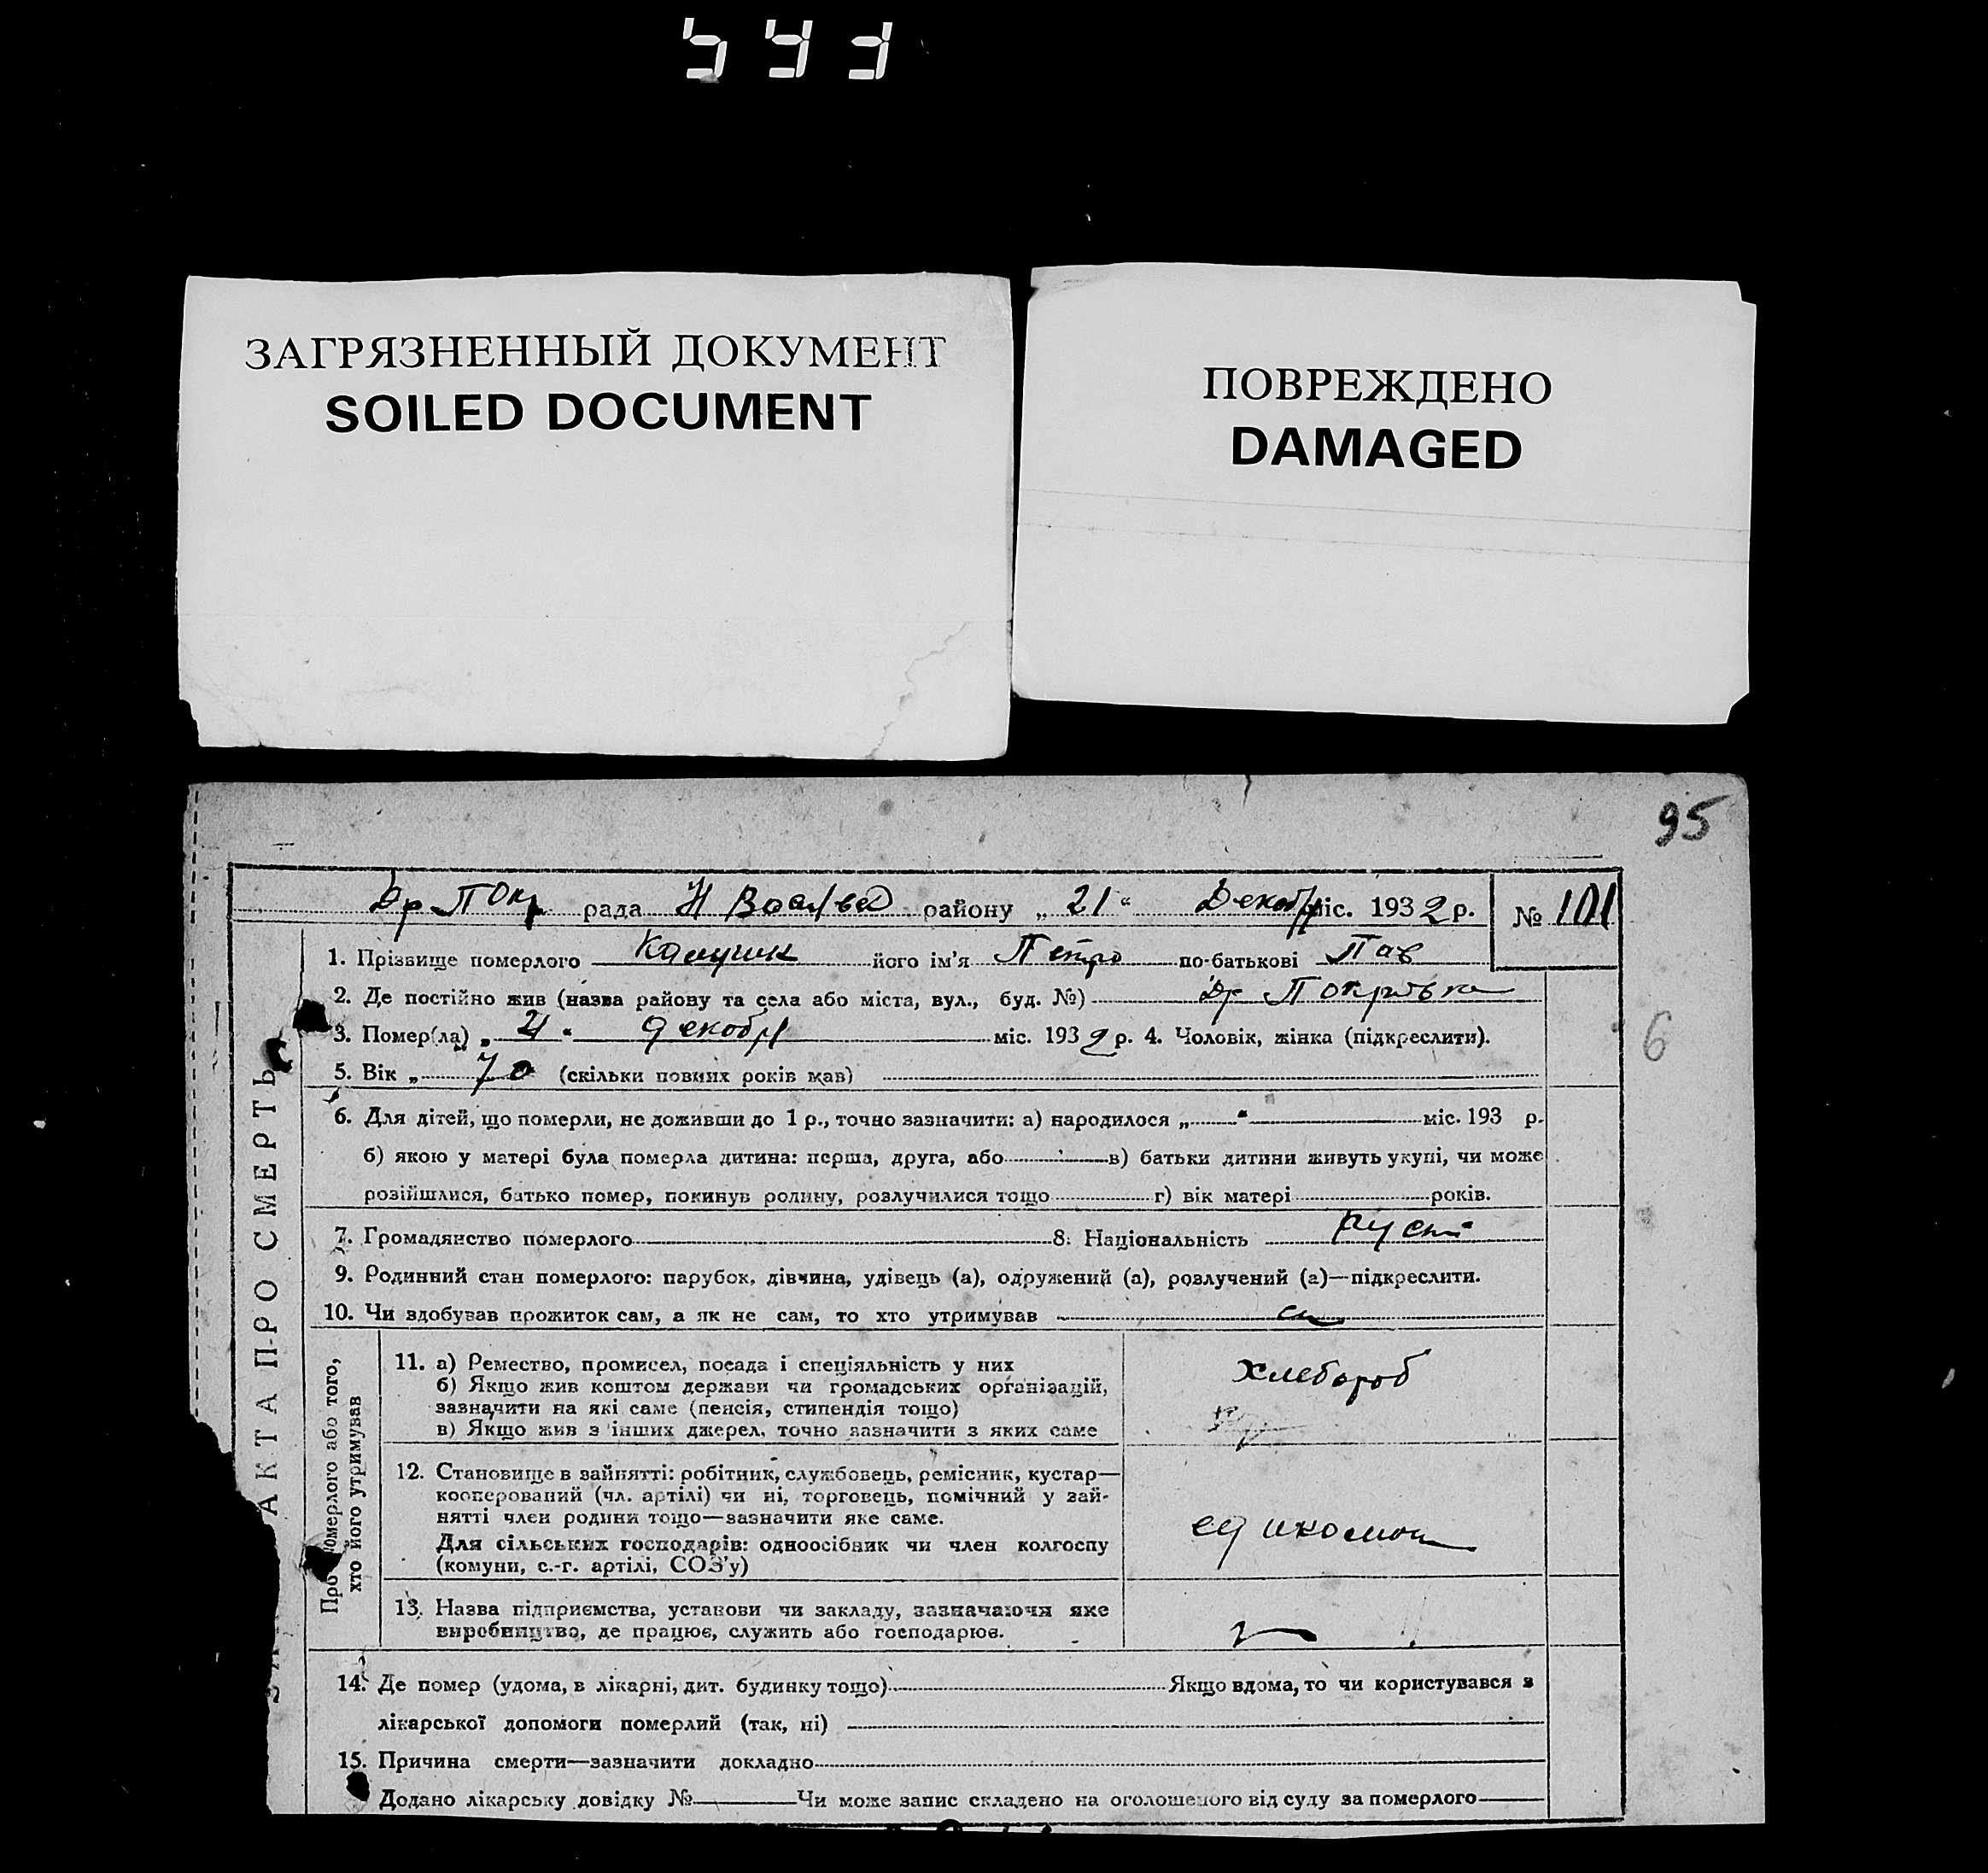 ЗАГРЯЗНЕННЫЙ ДОКУМЕНТ
SOILED DOCUMENT
ПОВРЕЖДЕНО
DAMAGED
95
Др Покр рада Н Васильев району „21“ Декабр міс. 1932 р. № 101
1. Прізвище померлого його ім’я Петро по-батькові Пав
2. Де постійно жив (назва району та села або міста, вул., буд. №) Др Покровка
3. Помер(ла) „21“ декабря міс. 1932 р. 4. Чоловік, жінка (підкреслити).
6
5. Вік „70 (скільки повних років мав)
6. Для дітей, що померли, не доживши до 1 р., точно зазначити: а) народилося „ “ міс. 193 р.
б) якою у матері була померла дитина: перша, друга, або в) батьки дитини живуть укупі, чи може
розійшлися, батько помер, покинув родину, розлучилися тощо г) вік матері років.
7. Громадянство померлого 8. Національність
9. Родинний стан померлого: парубок, дівчина, удівець (а), одружений (а), розлучений (а)—підкреслити.
10. Чи вдобував прожиток сам, а як не сам, то хто утримував
АКТА ПРО СМЕРТЬ
Про померлого або того,
хто його утримував
11. а) Ремество, промисел, посада і спеціяльність у них
б) Якщо жив коштом держави чи громадських організацій,
зазначити на які саме (пенсія, стипендія тощо)
в) Якщо жив з інших джерел, точно зазначити з яких саме
Хлебороб
12. Становище в зайнятті: робітник, службовець, ремісник, кустар—
кооперований (чл. артілі) чи ні, торговець, помічний у зай-
нятті член родини тощо—зазначити яке саме.
Для сільських господарів: одноосібник чи член колгоспу
(комуни, с.-г. артілі, СОЗ’у)
13. Назва підприємства, установи чи закладу, зазначаючи яке
виробництво, де працює, служить або господарює.
14. Де помер (удома, в лікарні, дит. будинку тощо) Якщо вдома, то чи користувався з
лікарської допомоги померлий (так, ні)
15. Причина смерти—зазначити докладно
Додано лікарську довідку № Чи може запис складено на оголошеного від суду за померлого